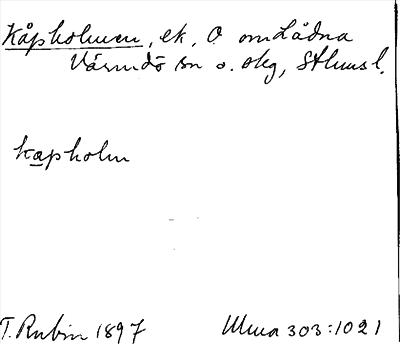 Kåpholmen, ek, O om Lådna
Värmdö sn o. skg, Sthms l.
kapholm
T. Rubin 1897 Ulma 303:1021